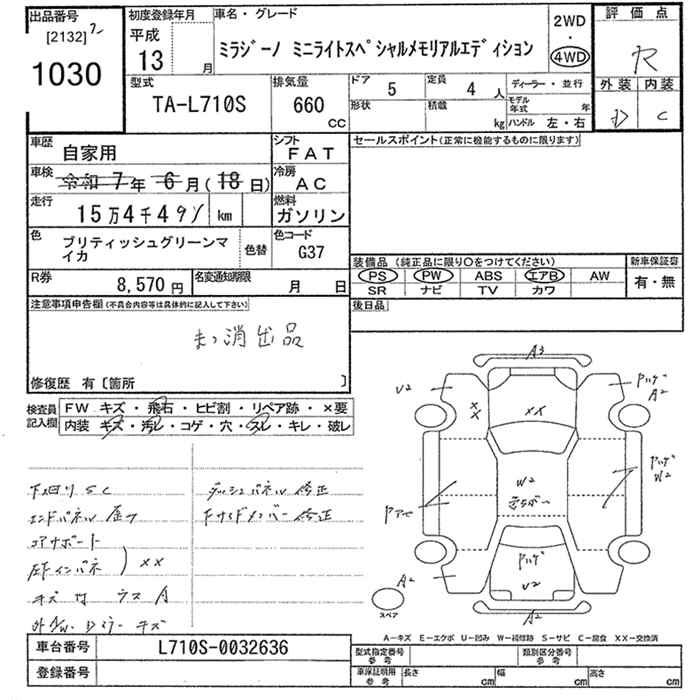 出品番号
[2132]
1030
初度登録年月
平成
13 月
車名・グレード
ミラジーノ ミニライトスペシャルメモリアルエディション
2WD
・
4WD
評価点
R
外装 内装
D C
型式
TA-L710S
排気量
660
CC
ドア 5
定員 4 人
ディーラー・並行
形状
積載 kg
モデル年式 年
ハンドル 左・右
車歴
自家用
シフト
FAT
車検
令和 7年 6月(18日)
冷房
AC
走行
15万4千49 km
燃料
ガソリン
色
ブリティッシュグリーンマイカ
色替
色コード
G37
R券
8,570円
名変通知期限
月 日
セールスポイント(正常に機能するものに限ります)
装備品(純正品に限り○をつけてください)
新車保証書
PS PW ABS エアB AW
SR ナビ TV カワ
有・無
後日品
注意事項申告欄(不具合内容等は具体的に記入して下さい)
まっ消出品
修復歴 有〔箇所 〕
検査員記入欄
FW キズ・飛石・ヒビ割・リペア跡・×要
内装 キズ・汚レ・コゲ・穴・スレ・キレ・破レ
下回りSC
エンドパネル 曲り
コアサポート
左右Fインパネ ) XX
ダッシュパネル 修正
Fサイドメンバー 修正
A3
U2
XX
XX
Pハゲ
A2
W2
色ちがい
Pハゲ
W2
Pアセ
A2
Pハゲ
U2
A2
スペア
A-キズ E-エクボ U-凹み W-補修跡 S-サビ C-腐食 XX-交換済
車台番号 L710S-0032636
登録番号
型式指定番号
参考
類別区分番号
参考
車庫証明用
参考
長さ cm 幅 cm 高さ cm